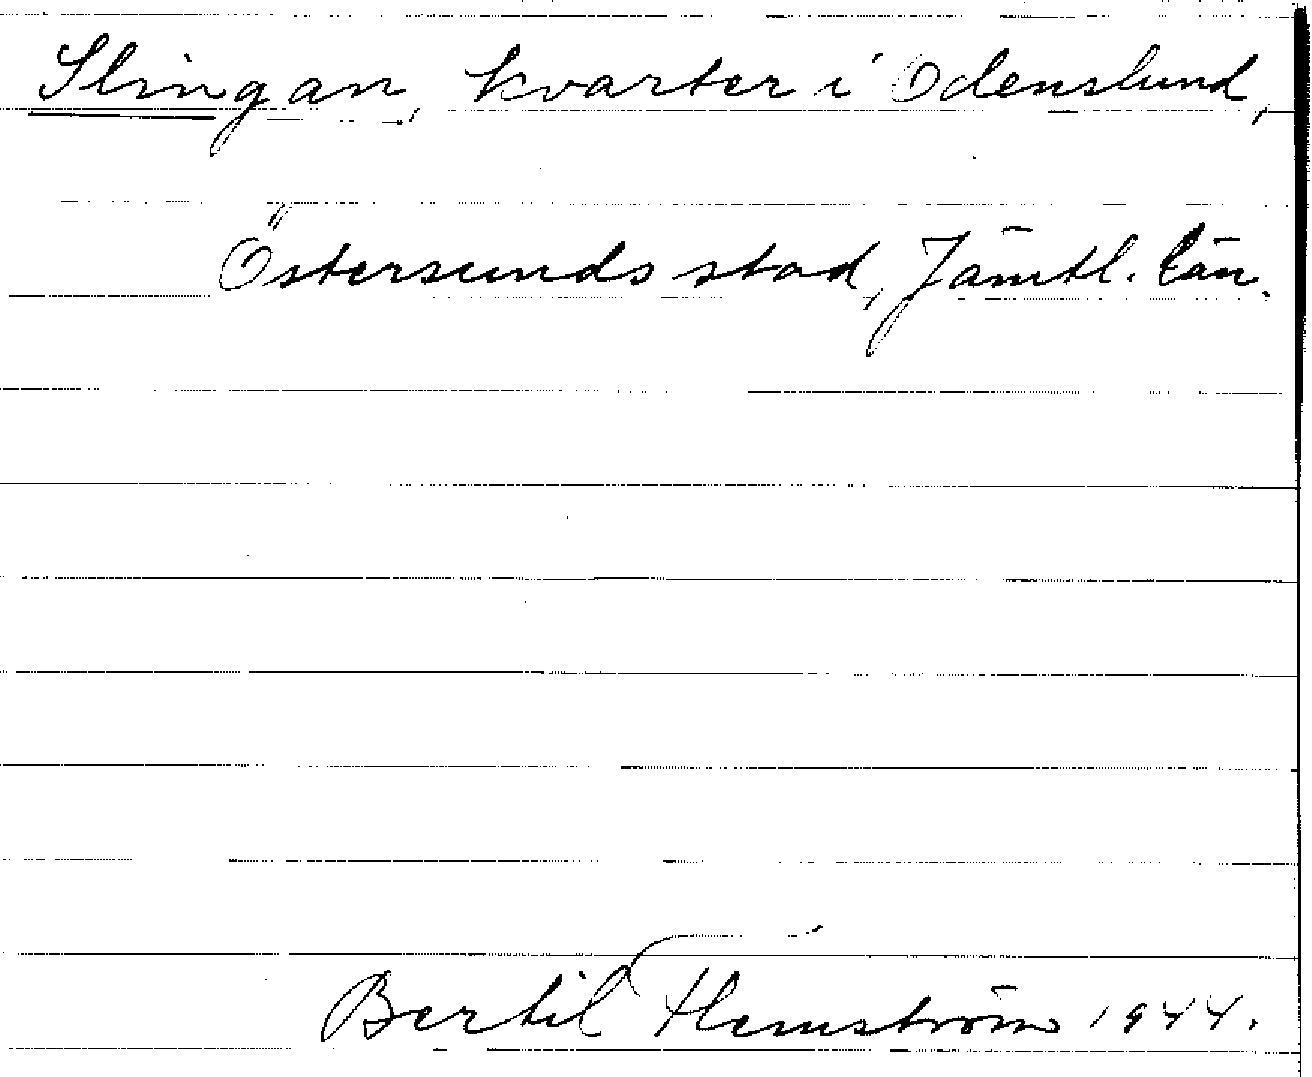 Slingan, kvarter i Odenslund,
Östersunds stad, Jämtl. län.
Bertil Hemström 1944.